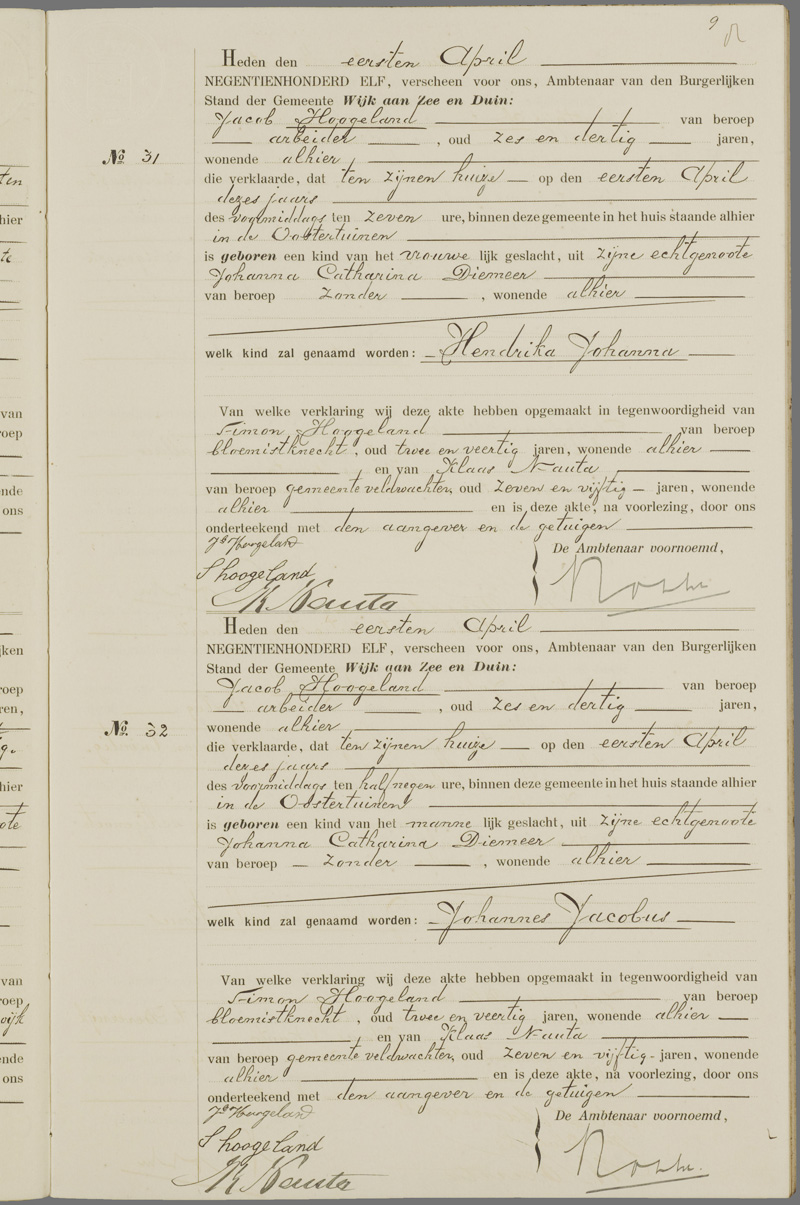 9
Heden den eersten April
NEGENTIENHONDERD ELF, verscheen voor ons, Ambtenaar van den Burgerlijken
Stand der Gemeente Wijk aan Zee en Duin:
Jacob Hoogeland van beroep
arbeider, oud zes en dertig jaren,
No 31
wonende alhier,
die verklaarde, dat ten zijnen huize op den eersten April
dezes jaars
des voormiddags ten zeven ure, binnen deze gemeente in het huis staande alhier
in de Oostertuinen
is geboren een kind van het vrouwelijk geslacht, uit zijne echtgenoote
Johanna Catharina Diemeer
van beroep zonder, wonende alhier
welk kind zal genaamd worden: Hendrika Johanna
Van welke verklaring wij deze akte hebben opgemaakt in tegenwoordigheid van
Simon Hoogeland van beroep
bloemistknecht, oud twee en veertig jaren, wonende alhier
, en van Klaas Nauta,
van beroep gemeente veldwachter, oud zeven en vijftig jaren, wonende
alhier en is deze akte, na voorlezing, door ons
onderteekend met den aangever en de getuigen
Jb Hoogeland
De Ambtenaar voornoemd,
S hoogeland
K. Nauta
Heden den eersten April
NEGENTIENHONDERD ELF, verscheen voor ons, Ambtenaar van den Burgerlijken
Stand der Gemeente Wijk aan Zee en Duin:
Jacob Hoogeland van beroep
arbeider, oud zes en dertig jaren,
No 32
wonende alhier
die verklaarde, dat ten zijnen huize op den eersten April
dezes jaars
des voormiddags ten half negen ure, binnen deze gemeente in het huis staande alhier
in de Oostertuinen
is geboren een kind van het mannelijk geslacht, uit zijne echtgenoote
Johanna Catharina Diemeer
van beroep zonder, wonende alhier
welk kind zal genaamd worden: Johannes Jacobus
Van welke verklaring wij deze akte hebben opgemaakt in tegenwoordigheid van
Simon Hoogeland van beroep
bloemistknecht, oud twee en veertig jaren, wonende alhier
, en van Klaas Nauta
van beroep gemeente veldwachter, oud zeven en vijftig jaren, wonende
alhier en is deze akte, na voorlezing, door ons
onderteekend met den aangever en de getuigen
Jb Hoogeland
De Ambtenaar voornoemd,
S hoogeland
K Nauta